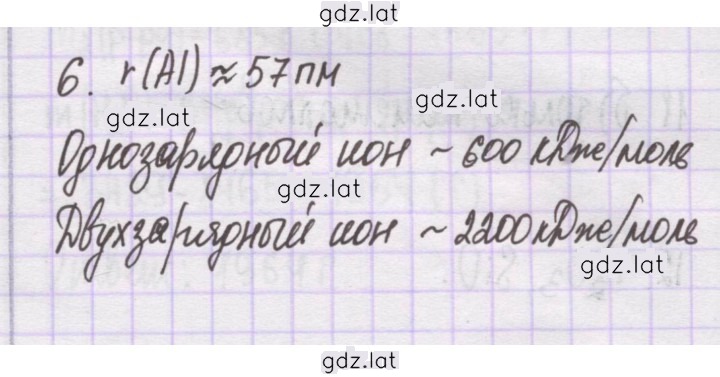 gdz.lat
6. r(Al) ≈ 57 пм
gdz.lat
gdz.lat
Однозарядный ион ~ 600 кДж/моль
gdz.lat
Двухзарядный ион ~ 2200 кДж/моль
gdz.lat
gdz.lat